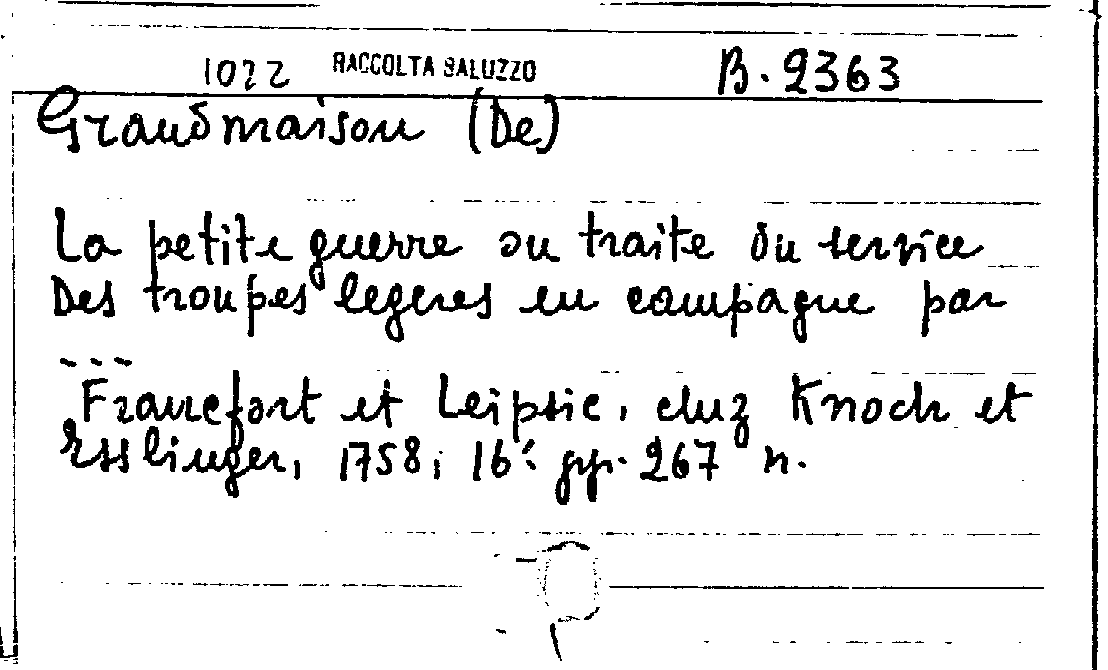 1022 RACCOLTA SALUZZO B. 2363
Grandmaison (De)
La petite guerre ou traite du service
Des troupes legeres en campagne par
---
Francfort et Leipsic, chez Knoch et
Esslinger, 1758, 16º pp. 267 n.